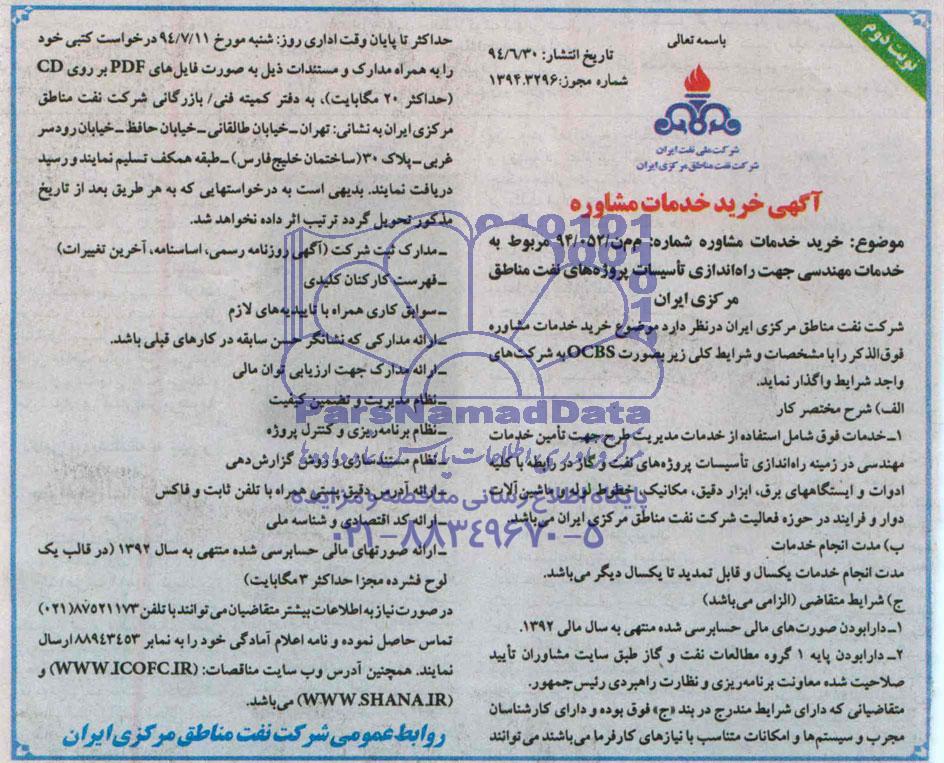 نوبت دوم
باسمه تعالی
تاریخ انتشار: ۹۴/۶/۳۰
شماره مجوز:۱۳۹۴.۳۲۹۶
شرکت ملی نفت ایران
شرکت نفت مناطق مرکزی ایران
آگهی خرید خدمات مشاوره
موضوع: خرید خدمات مشاوره شماره: م‌م‌ن/۹۴/۰۵۲ مربوط به
خدمات مهندسی جهت راه‌اندازی تأسیسات پروژه‌های نفت مناطق
مرکزی ایران
شرکت نفت مناطق مرکزی ایران درنظر دارد موضوع خرید خدمات مشاوره
فوق‌الذکر را با مشخصات و شرایط کلی زیر بصورت OCBS به شرکت‌های
واجد شرایط واگذار نماید.
الف) شرح مختصر کار
۱ـ خدمات فوق شامل استفاده از خدمات مدیریت طرح جهت تأمین خدمات
مهندسی در زمینه راه‌اندازی تأسیسات پروژه‌های نفت و گاز در رابطه با کلیه
ادوات و ایستگاههای برق، ابزار دقیق، مکانیک، خطوط لوله و ماشین آلات
دوار و فرایند در حوزه فعالیت شرکت نفت مناطق مرکزی ایران می‌باشد.
ب) مدت انجام خدمات
مدت انجام خدمات یکسال و قابل تمدید تا یکسال دیگر می‌باشد.
ج) شرایط متقاضی (الزامی می‌باشد)
۱ـ دارابودن صورت‌های مالی حسابرسی شده منتهی به سال مالی ۱۳۹۲.
۲ـ دارابودن پایه ۱ گروه مطالعات نفت و گاز طبق سایت مشاوران تأیید
صلاحیت شده معاونت برنامه‌ریزی و نظارت راهبردی رئیس‌جمهور.
متقاضیانی که دارای شرایط مندرج در بند «ج» فوق بوده و دارای کارشناسان
مجرب و سیستم‌ها و امکانات متناسب با نیازهای کارفرما می‌باشند می‌توانند
حداکثر تا پایان وقت اداری روز: شنبه مورخ ۹۴/۷/۱۱ درخواست کتبی خود
را به همراه مدارک و مستندات ذیل به صورت فایل‌های PDF بر روی CD
(حداکثر ۲۰ مگابایت)، به دفتر کمیته فنی/ بازرگانی شرکت نفت مناطق
مرکزی ایران به نشانی: تهران ـ خیابان طالقانی ـ خیابان حافظ ـ خیابان رودسر
غربی ـ پلاک ۳۰ (ساختمان خلیج‌فارس) ـ طبقه همکف تسلیم نمایند و رسید
دریافت نمایند. بدیهی است به درخواستهایی که به هر طریق بعد از تاریخ
مذکور تحویل گردد ترتیب اثر داده نخواهد شد.
ـ مدارک ثبت شرکت (آگهی روزنامه رسمی، اساسنامه، آخرین تغییرات)
ـ فهرست کارکنان کلیدی
ـ سوابق کاری همراه با تاییدیه‌های لازم
ـ ارائه مدارکی که نشانگر حسن سابقه در کارهای قبلی باشد.
ـ ارائه مدارک جهت ارزیابی توان مالی
ـ نظام مدیریت و تضمین کیفیت
ـ نظام برنامه‌ریزی و کنترل پروژه
ـ نظام مستندسازی و روش گزارش‌دهی
ـ ارائه آدرس دقیق پستی همراه با تلفن ثابت و فاکس
ـ ارائه کد اقتصادی و شناسه ملی
ـ ارائه صورتهای مالی حسابرسی شده منتهی به سال ۱۳۹۲ (در قالب یک
لوح فشرده مجزا حداکثر ۳ مگابایت)
در صورت نیاز به اطلاعات بیشتر متقاضیان می‌توانند با تلفن ۸۷۵۲۱۱۷۳(۰۲۱)
تماس حاصل نموده و نامه اعلام آمادگی خود را به نمابر ۸۸۹۴۳۴۵۳ ارسال
نمایند. همچنین آدرس وب سایت مناقصات: (WWW.ICOFC.IR) و
(WWW.SHANA.IR) می‌باشد.
روابط عمومی شرکت نفت مناطق مرکزی ایران
ParsNamadData
مرکز فرآوری اطلاعات پارس نماد داده‌ها
پایگاه اطلاع رسانی مناقصه و مزایده
۰۲۱-۸۸۳۴۹۶۷۰-۵